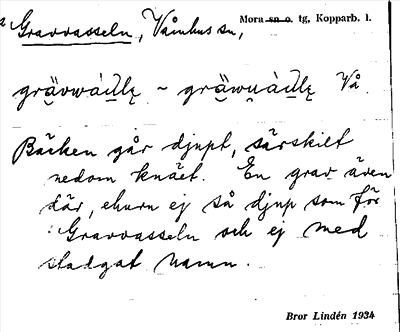 Gravvasseln, Våmhus sn, Mora sn o. tg, Kopparb. l.
Vå
Bäcken går djupt, särskilt
nedom knäet. En grav även
där, ehuru ej så djup som för
Gravvasseln och ej med
stadgat namn.
Bror Lindén 1934